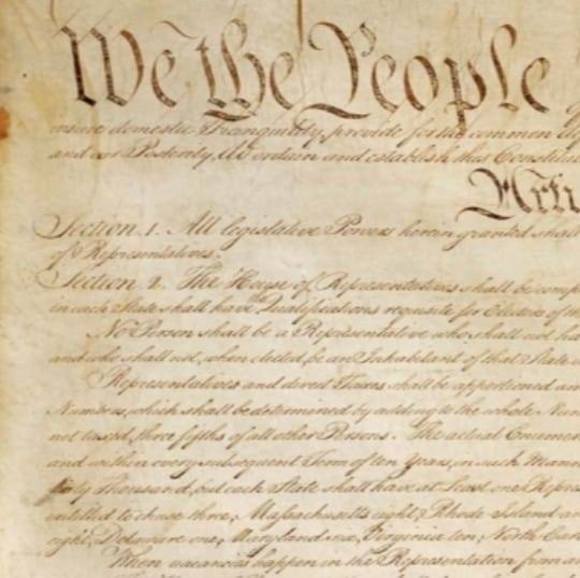 We the People
insure domestic Tranquility, provide for the common
and our Posterity, do ordain and establish this
Section. 1. All legislative Powers herein granted shall
of Representatives.
Section. 2. The House of Representatives shall be
in each State shall have the Qualifications requisite for Electors of the
No Person shall be a Representative who shall not
and who shall not, when elected, be an Inhabitant of that State
Representatives and direct Taxes shall be apportioned
Numbers, which shall be determined by adding to the whole
not taxed, three fifths of all other Persons. The actual
and within every subsequent Term of ten Years, in such
thirty Thousand, but each State shall have at Least one
entitled to chuse three, Massachusetts eight, Rhode Island
eight, Delaware one, Maryland six, Virginia ten, North
When vacancies happen in the Representation from